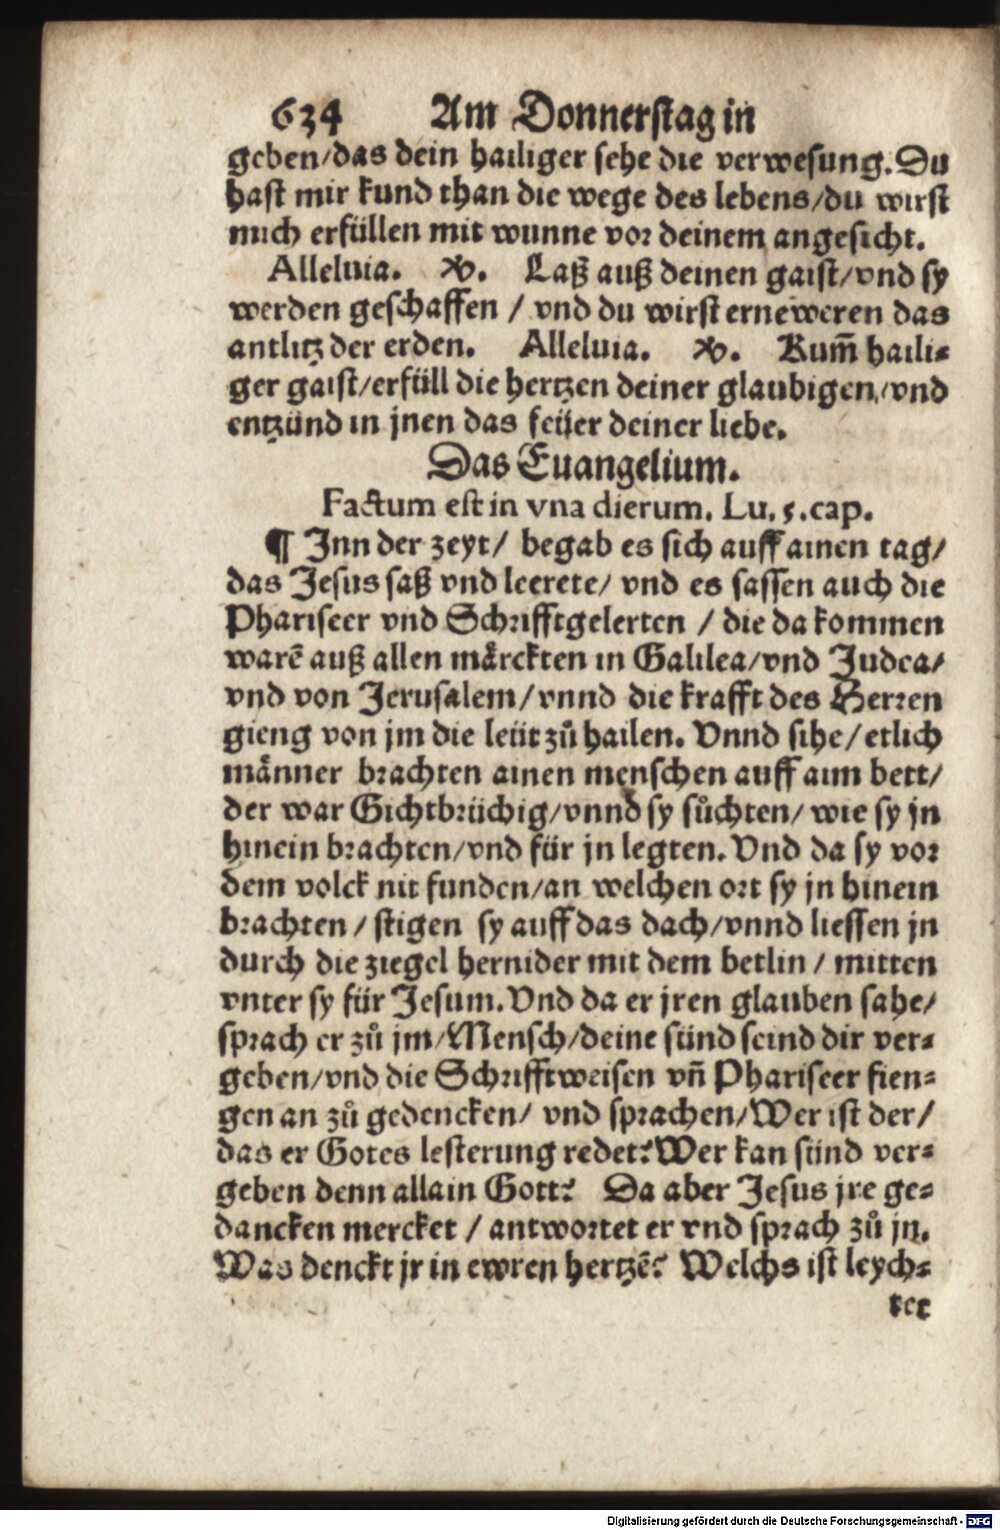 634 Am Donnerstag in
geben/das dein hailiger sehe die verwesung. Du
hast mir kund than die wege des lebens/du wirst
mich erfüllen mit wunne vor deinem angesicht.
Alleluia. ℣. Laß auß deinen gaist/vnd sy
werden geschaffen / vnd du wirst erneweren das
antlitz der erden. Alleluia. ℣. Kum̃ haili⸗
ger gaist/erfüll die hertzen deiner glaubigen/vnd
entzünd in jnen das feüer deiner liebe.
Das Euangelium.
Factum est in vna dierum. Lu. 5. cap.
¶ Inn der zeyt/ begab es sich auff ainen tag/
das Jesus saß vnd leerete/ vnd es sassen auch die
Phariseer vnd Schrifftgelerten / die da kommen
warẽ auß allen märckten in Galilea/vnd Judea/
vnd von Jerusalem/vnnd die krafft des Herren
gieng von jm die leüt zů hailen. Vnnd sihe/etlich
männer brachten ainen menschen auff aim bett/
der war Gichtbrüchig/vnnd sy sůchten/ wie sy jn
hinein brachten/vnd für jn legten. Vnd da sy vor
dem volck nit funden/an welchen ort sy jn hinein
brachten / stigen sy auff das dach/vnnd liessen jn
durch die ziegel hernider mit dem betlin / mitten
vnter sy für Jesum. Vnd da er jren glauben sahe/
sprach er zů jm/Mensch/deine sünd seind dir ver⸗
geben/vnd die Schrifftweisen vñ Phariseer fien⸗
gen an zů gedencken/ vnd sprachen/Wer ist der/
das er Gotes lesterung redet? Wer kan sünd ver⸗
geben denn allain Gott? Da aber Jesus jre ge⸗
dancken mercket / antwortet er vnd sprach zů jn.
Was denckt jr in ewren hertzẽ? Welchs ist leych⸗
ter
Digitalisierung gefördert durch die Deutsche Forschungsgemeinschaft - DFG